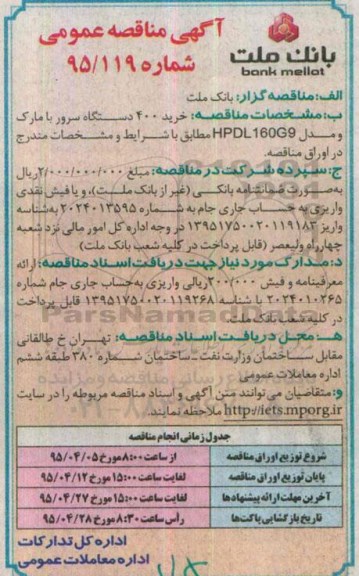 آگهی مناقصه عمومی
شماره ۹۵/۱۱۹
بانک ملت
bank mellat
الف: مناقصه گزار: بانک ملت
ب: مشخصات مناقصه: خرید ۴۰۰ دستگاه سرور با مارک
و مدل HPDL160G9 مطابق با شرایط و مشخصات مندرج
در اوراق مناقصه.
ج: سپرده شرکت در مناقصه: مبلغ ۲/۰۰۰/۰۰۰/۰۰۰ ریال
به‌صورت ضمانتنامه بانکی (غیر از بانک ملت)، و یا فیش نقدی
واریزی به حساب جاری جام به شماره ۲۰۲۴۰۱۳۵۹۵ به‌شناسه
واریز ۱۳۹۵۱۷۵۰۰۲۰۱۱۹۱۸۳ در وجه اداره کل امور مالی نزد شعبه
چهارراه ولیعصر (قابل پرداخت در کلیه شعب بانک ملت)
د: مدارک مورد نیاز جهت دریافت اسناد مناقصه: ارائه
معرفینامه و فیش ۲۰۰/۰۰۰ ریالی واریزی به‌حساب جاری جام شماره
۲۰۲۴۰۱۰۲۶۵ با شناسه ۱۳۹۵۱۷۵۰۰۲۰۱۱۹۲۶۸ قابل پرداخت
در کلیه شعب بانک ملت.
هـ: محل دریافت اسناد مناقصه: تهران خ طالقانی
مقابل ساختمان وزارت نفت ـ ساختمان شماره ۳۸۰ طبقه ششم
اداره معاملات عمومی
و: متقاضیان می توانند متن آگهی و اسناد مناقصه مربوطه را در سایت
http://iets.mporg.ir ملاحظه نمایند.
جدول زمانی انجام مناقصه
شروع توزیع اوراق مناقصه از ساعت ۸:۰۰ مورخ ۹۵/۰۴/۰۵
پایان توزیع اوراق مناقصه لغایت ساعت ۱۵:۰۰ مورخ ۹۵/۰۴/۱۲
آخرین مهلت ارائه پیشنهادها لغایت ساعت ۱۵:۰۰ مورخ ۹۵/۰۴/۲۷
تاریخ بازگشایی پاکت‌ها رأس ساعت ۸:۳۰ مورخ ۹۵/۰۴/۲۸
اداره کل تدارکات
اداره معاملات عمومی